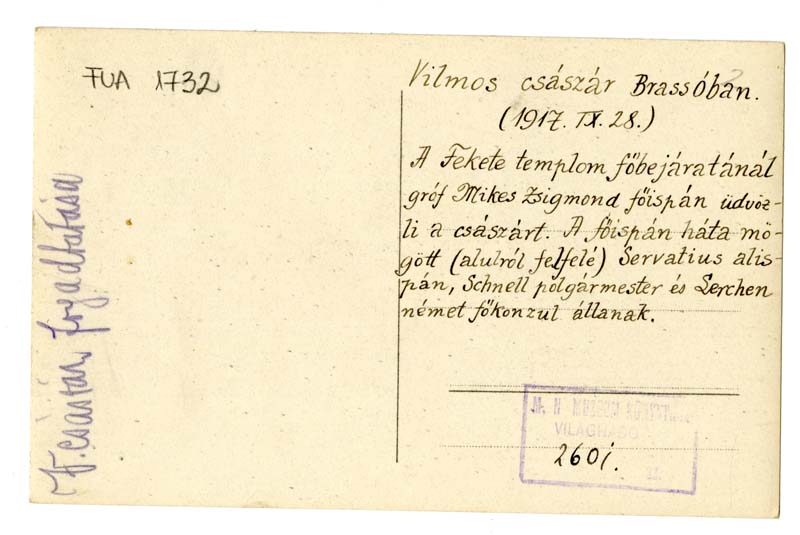 FUA 1732
Vilmos császár Brassóban.
(1917. IX. 28.)
A Fekete templom főbejáratánál
gróf Mikes Zsigmond főispán üdvöz-
li a császárt. A főispán háta mö-
gött (alulról felfelé) Servatius alis-
pán, Schnell polgármester és Lerchen
német főkonzul állanak.
V. császár, fogadtatása
VILÁGHÁBO
2601.